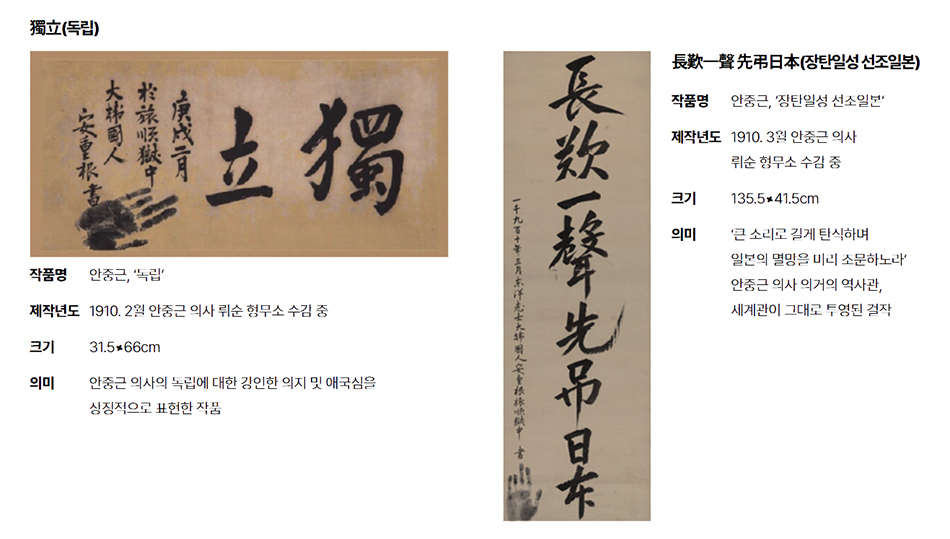 獨立(독립)
獨立
庚戌二月
於旅順獄中
大韓國人
安重根書
작품명 안중근, ‘독립’
제작년도 1910. 2월 안중근 의사 뤼순 형무소 수감 중
크기 31.5*66cm
의미 안중근 의사의 독립에 대한 강인한 의지 및 애국심을
상징적으로 표현한 작품
長歎一聲先弔日本
一千九百十年三月東洋志士大韓國人安重根旅順獄中 書
長歎一聲 先弔日本(장탄일성 선조일본)
작품명 안중근, ‘장탄일성 선조일본’
제작년도 1910. 3월 안중근 의사
뤼순 형무소 수감 중
크기 135.5*41.5cm
의미 ‘큰 소리로 길게 탄식하며
일본의 멸망을 미리 조문하노라’
안중근 의사 의거의 역사관,
세계관이 그대로 투영된 걸작